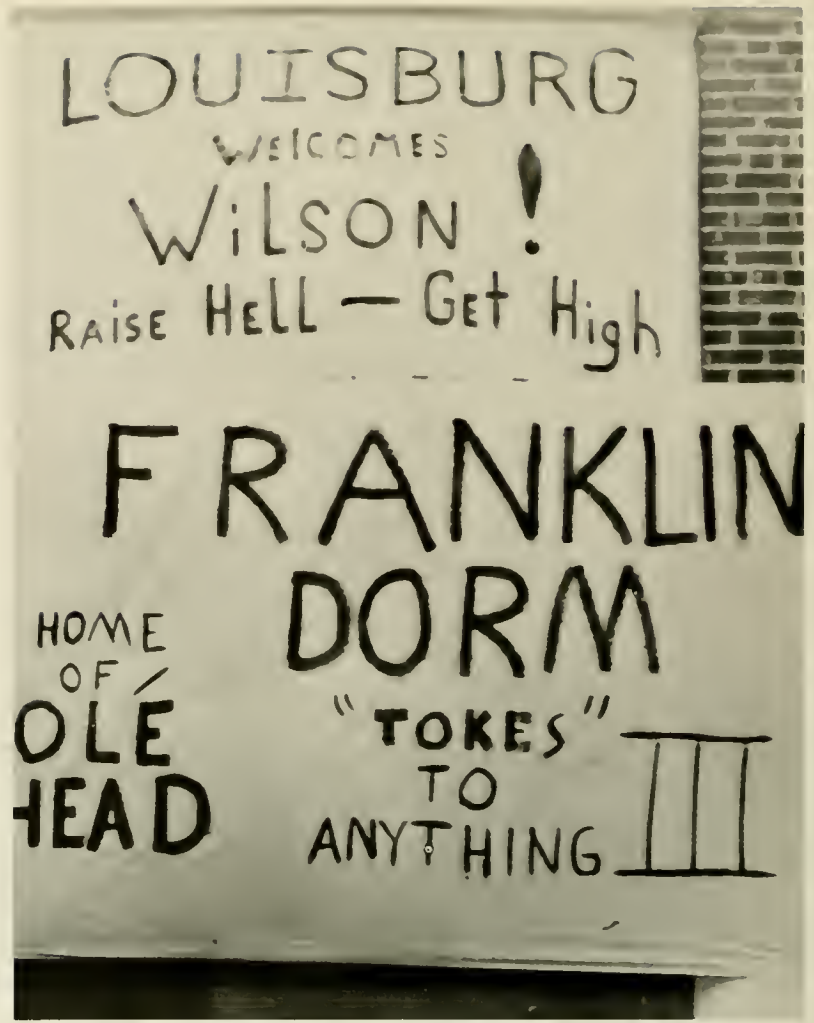 LOUISBURG
WELCOMES
WiLSON !
RAiSE HELL — GEt High
FRANKLIN
DORM
HOME
OF
OLÉ
HEAD
"TOKES"
TO
ANYTHING III